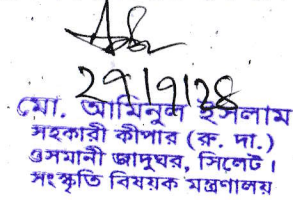 ২৭/৭/২৪
মো. আমিনুল ইসলাম
সহকারী কীপার (রু. দা.)
ওসমানী জাদুঘর, সিলেট।
সংস্কৃতি বিষয়ক মন্ত্রণালয়